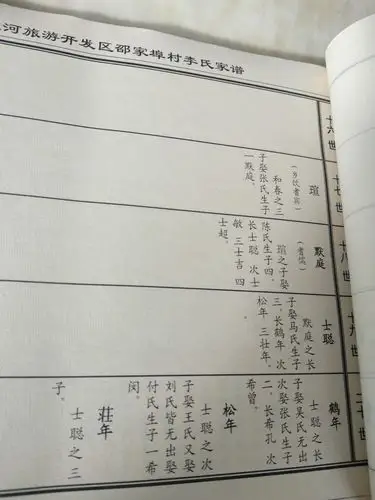 河旅游开发区邵家埠村李氏家谱
十六世
十七世
瑄
（乡饮耆宾）
和春之三
子娶张氏生子
一默庭。
十八世
默庭
（耆儒）
瑄之子娶
陈氏生子四，
长士聪 次士
敏 三士吉 四
士超。
十九世
士聪
默庭之长
子娶马氏生子
三，长鹤年 次
松年 三壮年。
二十世
鹤年
士聪之长
子娶吴氏无出
次娶张氏生子
二，长希孔 次
希曾。
松年
士聪之次
子娶王氏又娶
刘氏皆无出娶
付氏生子一希
闵。
莊年
士聪之三
子。